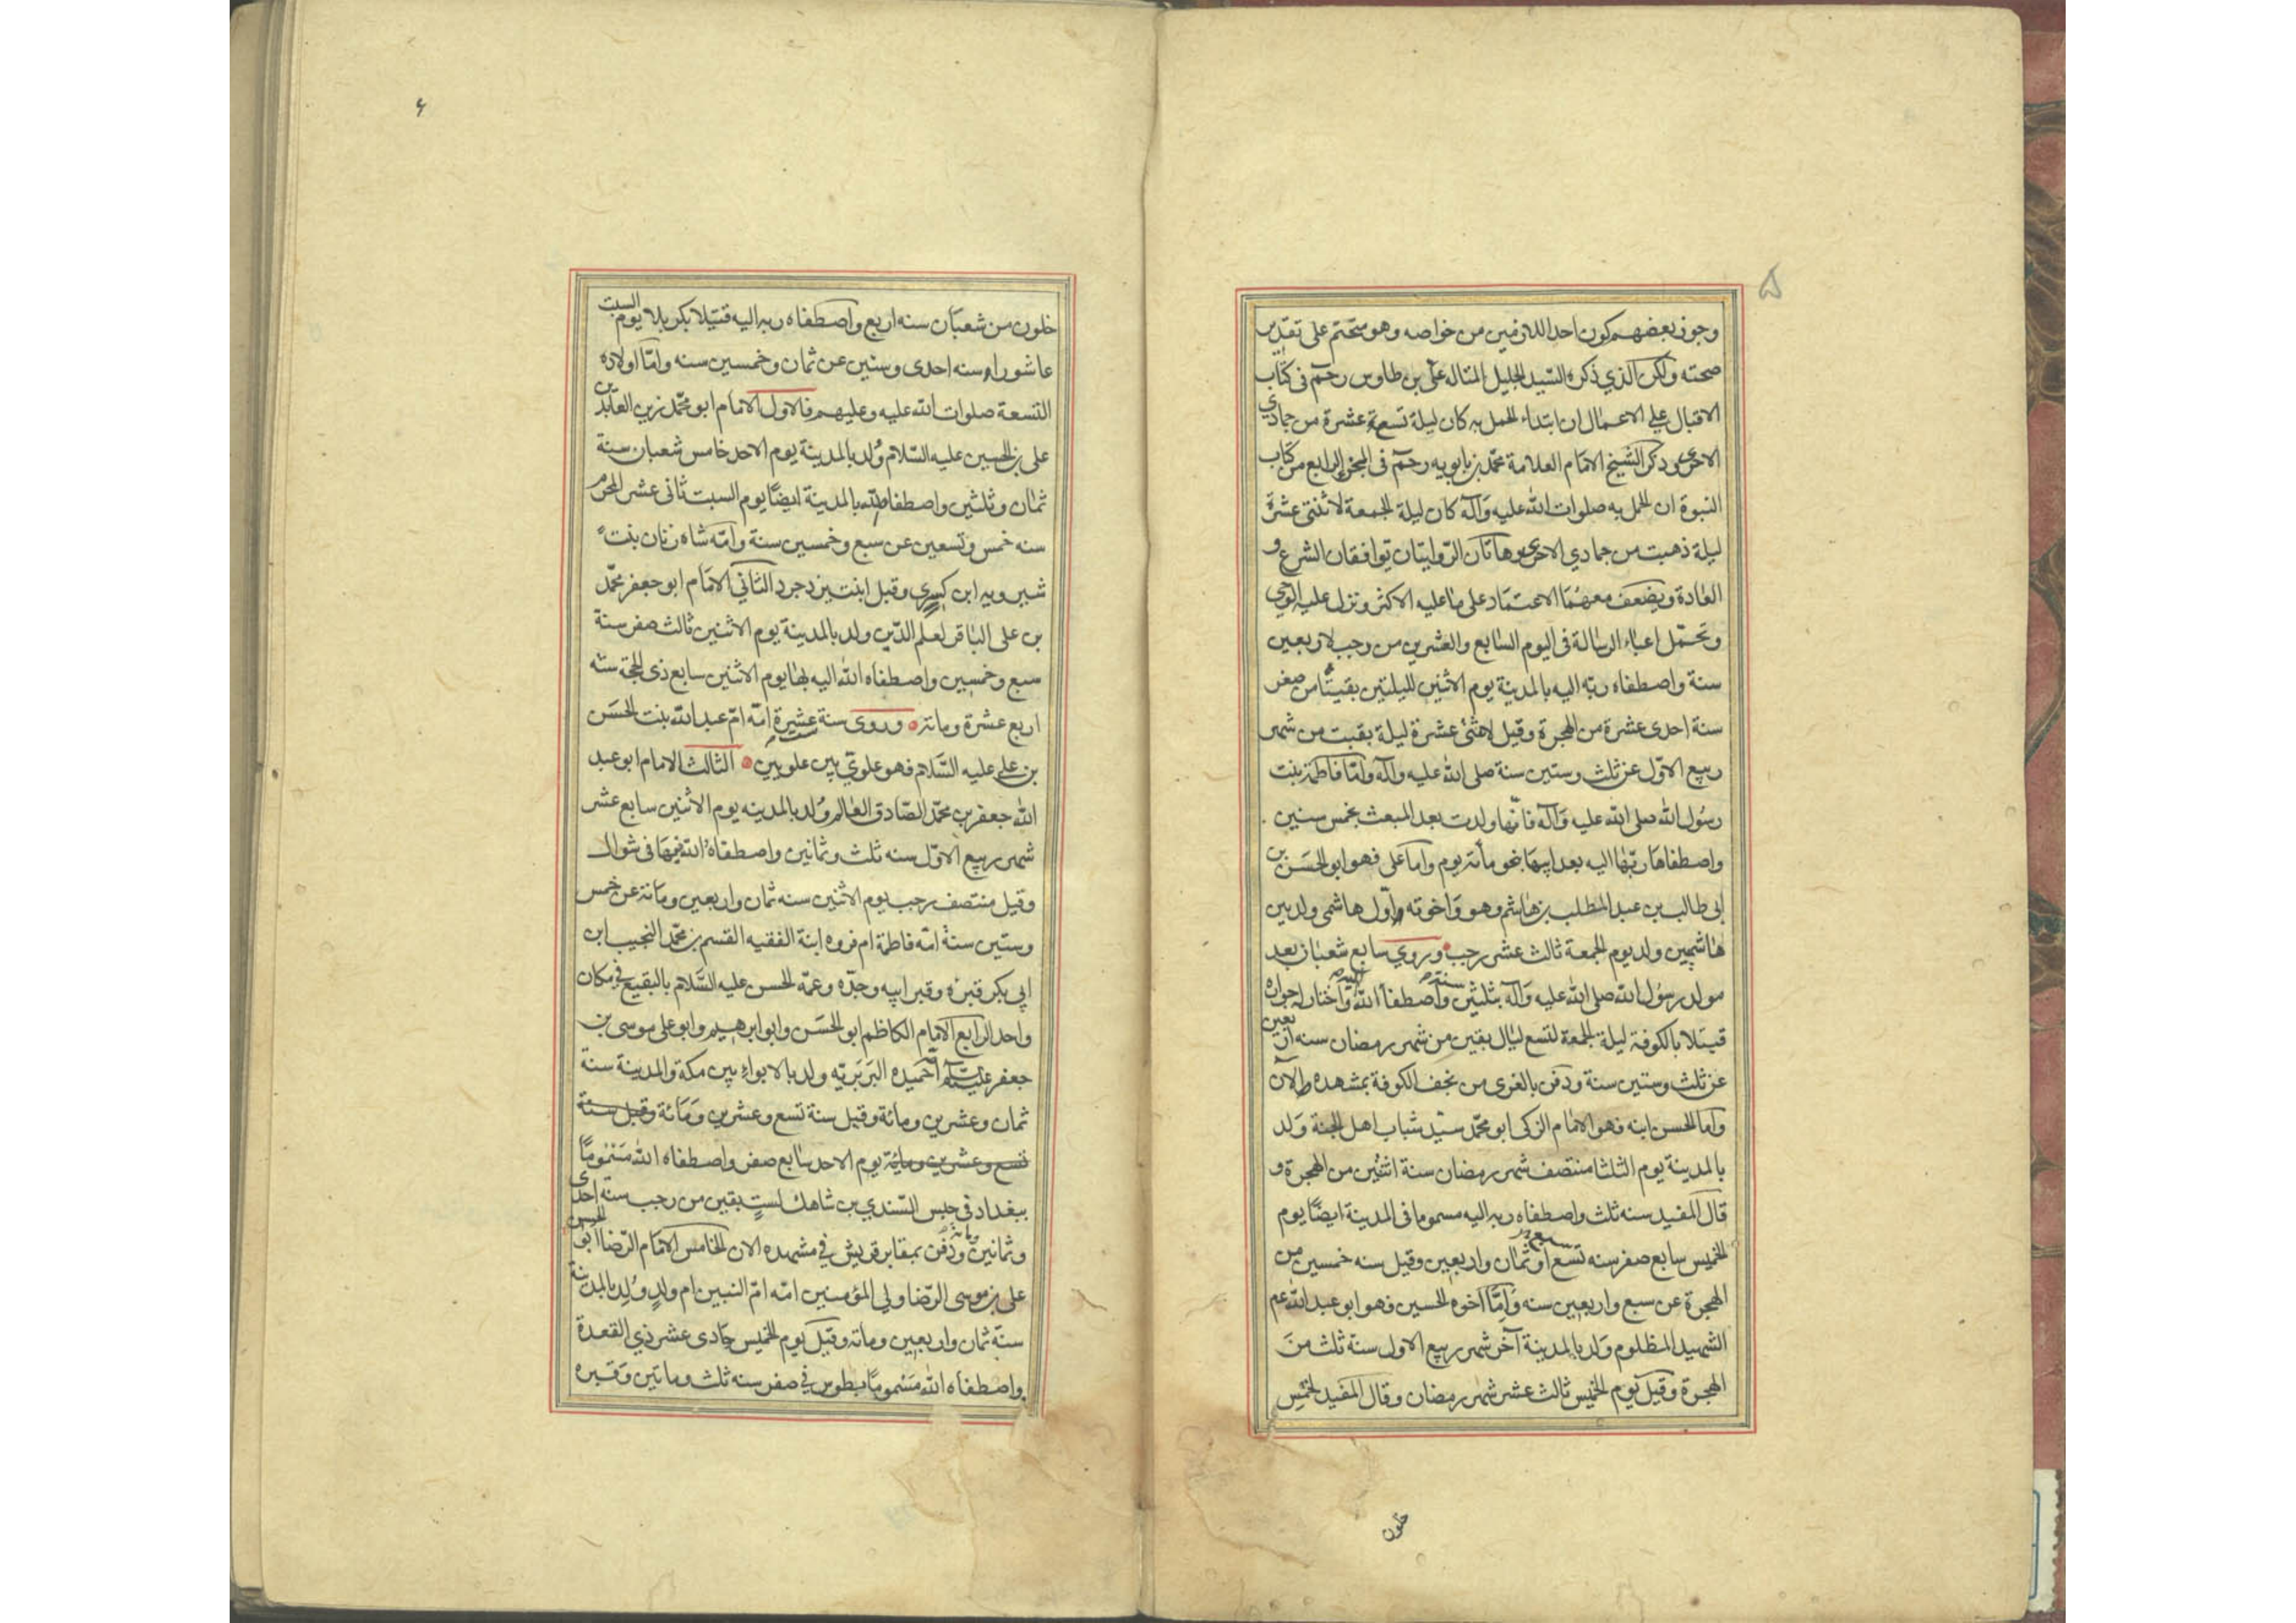 ۵
وجوز بعضهم كون احد اللازمين من خواصه وهو متحتم على تقدير
صحته ولكن الذي ذكره السيد الجليل المتاله علي بن طاوس رحمه في كتاب
الاقبال علي الاعمال ان ابتداء الحمل به كان ليلة تسعة عشرة من جمادي
الاخرى وذكر الشيخ الامام العلامة محمد بن بابويه رحمه في الجزء الرابع من كتاب
النبوة ان الحمل به صلوات الله عليه وآله كان ليلة الجمعة لاثنتى عشرة
ليلة ذهبت من جمادي الاخرى وهاتان الروايتان توافقان الشرع و
العادة ويضعف معهما الاعتماد على ما عليه الاكثر ونزل عليه الوحي
وتحمل اعباء الرسالة في اليوم السابع والعشرين من رجب لاربعين
سنة واصطفاه ربه اليه بالمدينة يوم الاثنين لليلتين بقيتا من صفر
سنة احدى عشرة من الهجرة وقيل لاثنى عشرة ليلة بقيت من شهر
ربيع الاول عن ثلث وستين سنة صلى الله عليه وآله واما فاطمة بنت
رسول الله صلى الله عليه وآله فانها ولدت بعد المبعث بخمس سنين
واصطفاها ربها اليه بعد ابيها نحو مأئة يوم واما على فهو ابو الحسن بن
ابى طالب بن عبد المطلب بن هاشم وهو واخوته اول هاشمى ولد بين
هاشميين ولد يوم الجمعة ثالث عشر رجب وروي سابع شعبان بعد
مولد رسول الله صلى الله عليه وآله بثلثين سنة واصطفاه الله اليه واختار له جواره
قتيلا بالكوفة ليلة الجمعة لتسع ليال بقين من شهر رمضان سنه اربعين
عن ثلث وستين سنة ودفن بالغرى من نجف الكوفة بمشهده الآن
واما الحسن ابنه فهو الامام الزكى ابو محمد سيد شباب اهل الجنة ولد
بالمدينة يوم الثلثا منتصف شهر رمضان سنة اثنين من الهجرة و
قال المفيد سنه ثلث واصطفاه ربه اليه مسموما فى المدينة ايضا يوم
الخميس سابع صفر سنه تسع او ثمان واربعين وقيل سنه خمسين من
الهجرة عن سبع واربعين سنه واما اخوه الحسين فهو ابو عبد الله عم
الشهيد المظلوم ولد بالمدينة آخر شهر ربيع الاول سنة ثلث من
الهجرة وقيل يوم الخميس ثالث عشر شهر رمضان وقال المفيد لخمس
خلون
۶
خلون من شعبان سنه اربع واصطفاه ربه اليه قتيلا بكربلا يوم السبت
عاشورا سنه احدى وستين عن ثمان وخمسين سنه واما اولاده
التسعة صلوات الله عليه وعليهم فالاول الامام ابو محمد زين العابدين
على بن الحسين عليه السلام ولد بالمدينة يوم الاحد خامس شعبان سنة
ثمان وثلثين واصطفاه الله بالمدينة ايضا يوم السبت ثانى عشر المحرم
سنه خمس وتسعين عن سبع وخمسين سنة وامه شاه زنان بنت
شيرويه ابن كسرى وقيل ابنت يزدجرد الثاني الامام ابو جعفر محمد
بن على الباقر لعلم الدين ولد بالمدينة يوم الاثنين ثالث صفر سنة
سبع وخمسين واصطفاه الله اليه بها يوم الاثنين سابع ذى الحجة سنه
اربع عشرة ومائة وروى سنة عشرة امه ام عبد الله بنت الحسن
بن علي عليه السلام فهو علوي بين علويين الثالث الامام ابو عبد
الله جعفر بن محمد الصادق العالم ولد بالمدينه يوم الاثنين سابع عشر
شهر ربيع الاول سنه ثلث وثمانين واصطفاه الله فيها فى شوال
وقيل منتصف رجب يوم الاثنين سنه ثمان واربعين ومائة عن خمس
وستين سنة امه فاطمة ام فروه ابنة الفقيه القسم بن محمد النجيب ابن
ابى بكر قبره وقبر ابيه وجده وعمه الحسن عليه السلام بالبقيع في مكان
واحد الرابع الامام الكاظم ابو الحسن وابو ابرهيم وابو على موسى بن
جعفر عليه السلام امه حميده البربريه ولد بالابواء بين مكة والمدينة سنة
ثمان وعشرين ومائة وقيل سنة تسع وعشرين ومائة وقيل سنة
تسع وعشرين ومائة يوم الاحد سابع صفر واصطفاه الله مسموما
ببغداد في حبس السندي بن شاهك لست بقين من رجب سنه احدى
وثمانين ومائة ودفن بمقابر قريش في مشهده الان الخامس الامام الرضا ابو الحسن
على بن موسى الرضا ولي المؤمنين امه ام النبين ام ولد ولد بالمدينة
سنة ثمان واربعين ومائة وقيل يوم الخميس حادى عشر ذي القعدة
واصطفاه الله مسموما بطوس في صفر سنه ثلث ومأتين وقبره